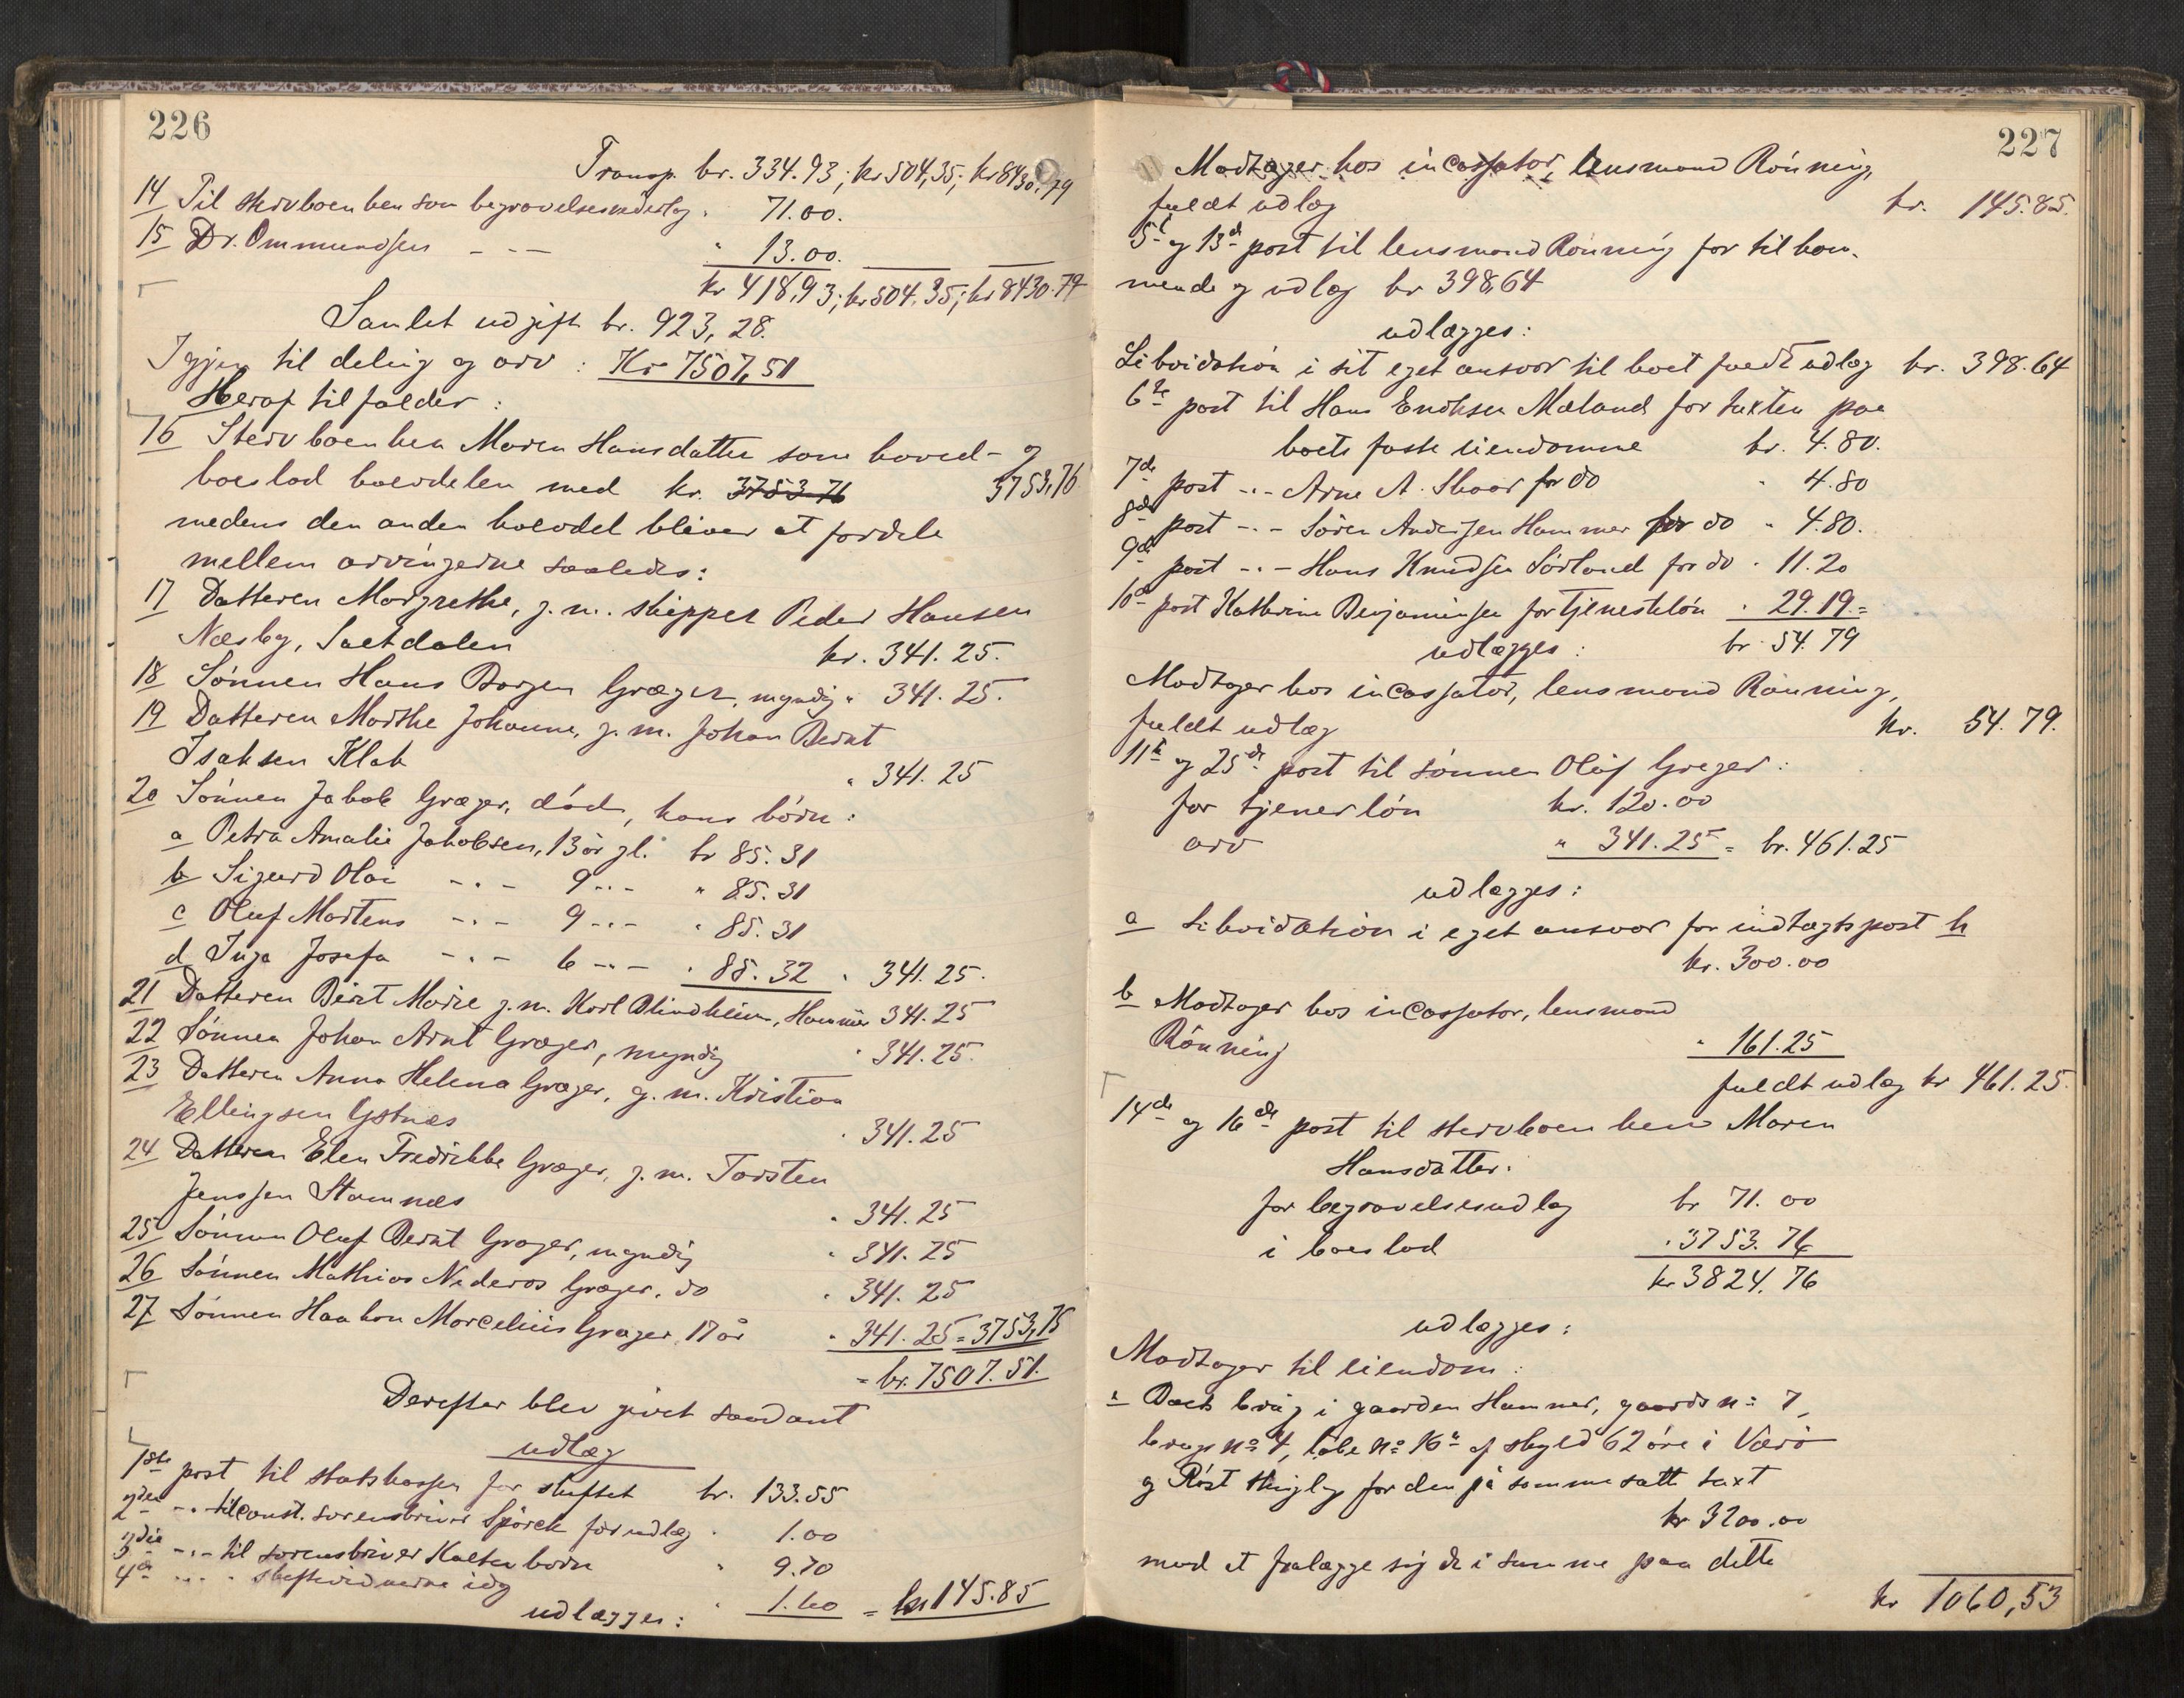 226
Transp. kr. 334.93; kr 504,35; kr 8430,79
14 Til stervboenken som begravelsesudlæg " 71.00.
15 Dr. Ommundsen - - - " 13.00.
kr 418,93; kr 504,35; kr 8430.79
Samlet udgift kr. 923,28.
Igjen til deling og arv: Kr 7507,51
Heraf tilfalder:
16 Stervboenken Maren Hansdatter som hoved- og
boeslod boesdelen med kr. 3753.76 3753,76
medens den anden halvdel bliver at fordele
mellem arvingerne saaledes:
17 Datteren Margrethe, g. m. skipper Peder Hansen
Næsby, Saltdalen kr. 341.25.
18 Sønnen Hans Græger, myndig " 341.25.
19 Datteren Marthe Johanne, g. m. Johan Bernt
Isaksen Klak " 341.25
20 Sønnen Jakob Græger, død, hans børn:
a Petra Amalie Jakobsen, 13 år gl. kr 85.31
b Sigurd Olai -"- 9 -"- " 85.31
c Oluf Martens -"- 9 -"- " 85.31
d Inga Josefa -"- 6 -"- " 85.32 " 341.25.
21 Datteren Berit Marie g. m. Karl Blindheim, Hammer 341.25
22 Sønnen Johan Arnt Græger, myndig " 341.25.
23 Datteren Anna Helena Græger, g. m. Kristian
Ellingsen " 341.25
24 Datteren Elen Fredrikke Græger, g. m. Torsten
Jenssen Stamnæs " 341.25
25 Sønnen Oluf Bernt Græger, myndig " 341.25
26 Sønnen Mathias Nideros Græger, do " 341.25
27 Sønnen Haakon Marcelius Græger 17 år " 341.25 = 3753,75
= kr. 7507.51.
Derefter blev givet saadant
udlæg
1ste post til statskassen for skiftet kr. 133.55
2den -"- til const. sorenskriver Spörck for udlæg " 1.00
3die -"- til sorenskriver Kaltenborn " 9.70
4de -"- " skiftevidnerne idag " 1.60 = kr 145.85
udlægges:
227
Modtager hos incassator, lensmand Rønning,
fuldt udlæg kr. 145.85.
5te og 13de post til lensmand Rønning for tilkom-
mende og udlæg kr 398,64
udlægges:
Likvidation i sit eget ansvar til boet fuldt udlæg kr. 398.64
6te post til Hans Enoksen Mæland for taxten paa
boets faste eiendomme kr. 4.80.
7de post -"- Arne A. Skaar for do " 4.80
8de post -"- Søren Andersen Hammer for do " 4.80.
9de post -"- Hans Knudsen Sørland for do " 11.20
10de post Kathrine Benjaminsen for tjenesteløn " 29.19 =
udlægges: kr 54.79
Modtager hos incassator, lensmand Rønning,
fuldt udlæg kr. 54.79.
11te og 25de post til sønnen Oluf Greger:
for tjenerløn kr. 120.00
arv " 341.25 = kr. 461.25
udlægges:
a Likvidation i eget ansvar for indtægtspost h
kr. 300.00
b Modtager hos incassator, lensmand
Rønning " 161.25
fuldt udlæg kr 461.25.
14de og 16de post til stervboenken Maren
Hansdatter.
for begravelsesudlæg kr 71.00
i boeslod " 3753.76
kr 3824.76
udlægges:
Modtager til eiendom:
a Boets brug i gaarden Hammer, gaards no 7,
brugs no 4, løbe no 16a af skyld 62 øre i Værø
og Røst thinglag for den på samme satte taxt
kr 3200.00
mod at paalægge sig de i samme paa dette
kr 1060,53